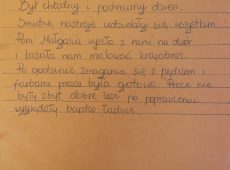 Był chłodny i pochmurny dzień.
Smutne nastroje udzieliły się wszystkim.
Pani Małgosia wyszła z nami na dwór
i kazała nam malować krajobraz.
Po godzinie zmagania się z pędzlem i
farbami praca była gotowa. Prace nie
były zbyt dobre lecz po poprawieniu
wyglądały bardzo ładnie.